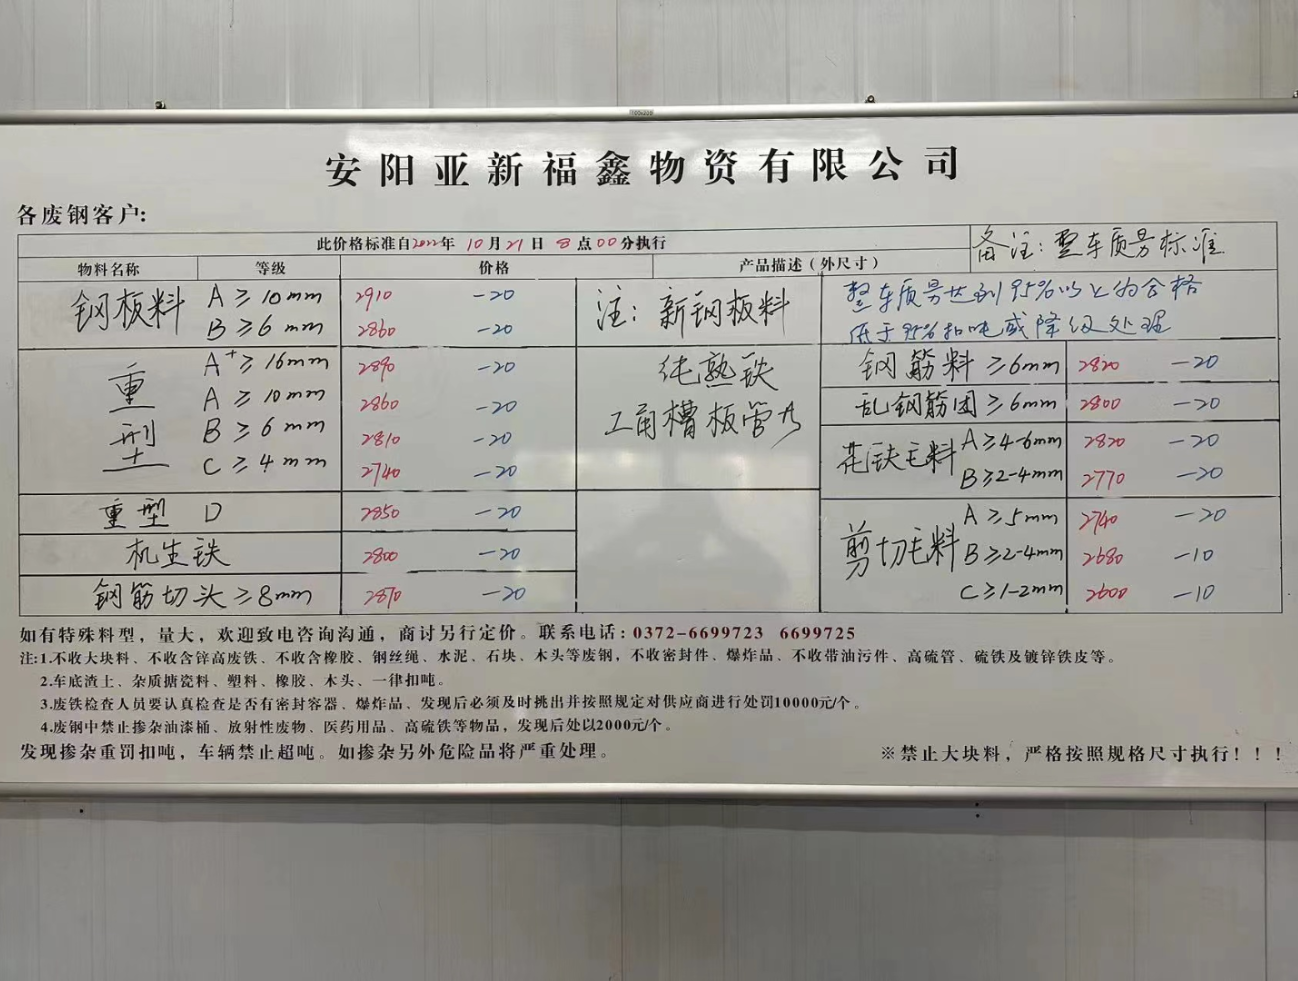 安阳亚新福鑫物资有限公司
各废钢客户:
此价格标准自2022年 10月21日 8点00分执行
备注: 整车质另标准
物料名称 等级 价格 产品描述（外尺寸）
钢板料 A ≥ 10mm 2910 -20
B ≥ 6mm 2860 -20
注: 新钢板料
整车质另达到95%以上的合格
低于95%扣吨或降级处理
重型 A⁺ ≥ 16mm 2890 -20
A ≥ 10mm 2860 -20
B ≥ 6mm 2810 -20
C ≥ 4mm 2740 -20
纯熟铁
工角槽板管
重型 D 2850 -20
机生铁 2800 -20
钢筋切头 ≥8mm 2870 -20
钢筋料 ≥6mm 2820 -20
乱钢筋团 ≥6mm 2800 -20
花铁毛料 A ≥4-6mm 2820 -20
B ≥2-4mm 2770 -20
剪切毛料 A ≥5mm 2740 -20
B ≥2-4mm 2680 -10
C ≥1-2mm 2600 -10
如有特殊料型，量大，欢迎致电咨询沟通，商讨另行定价。联系电话: 0372-6699723 6699725
注:1.不收大块料、不收含锌高废铁、不收含橡胶、钢丝绳、水泥、石块、木头等废钢，不收密封件、爆炸品、不收带油污件、高硫管、硫铁及镀锌铁皮等。
2.车底渣土、杂质搪瓷料、塑料、橡胶、木头、一律扣吨。
3.废铁检查人员要认真检查是否有密封容器、爆炸品、发现后必须及时挑出并按照规定对供应商进行处罚10000元/个。
4.废钢中禁止掺杂油漆桶、放射性废物、医药用品、高硫铁等物品，发现后处以2000元/个。
发现掺杂重罚扣吨，车辆禁止超吨。如掺杂另外危险品将严重处理。
※禁止大块料，严格按照规格尺寸执行！！！